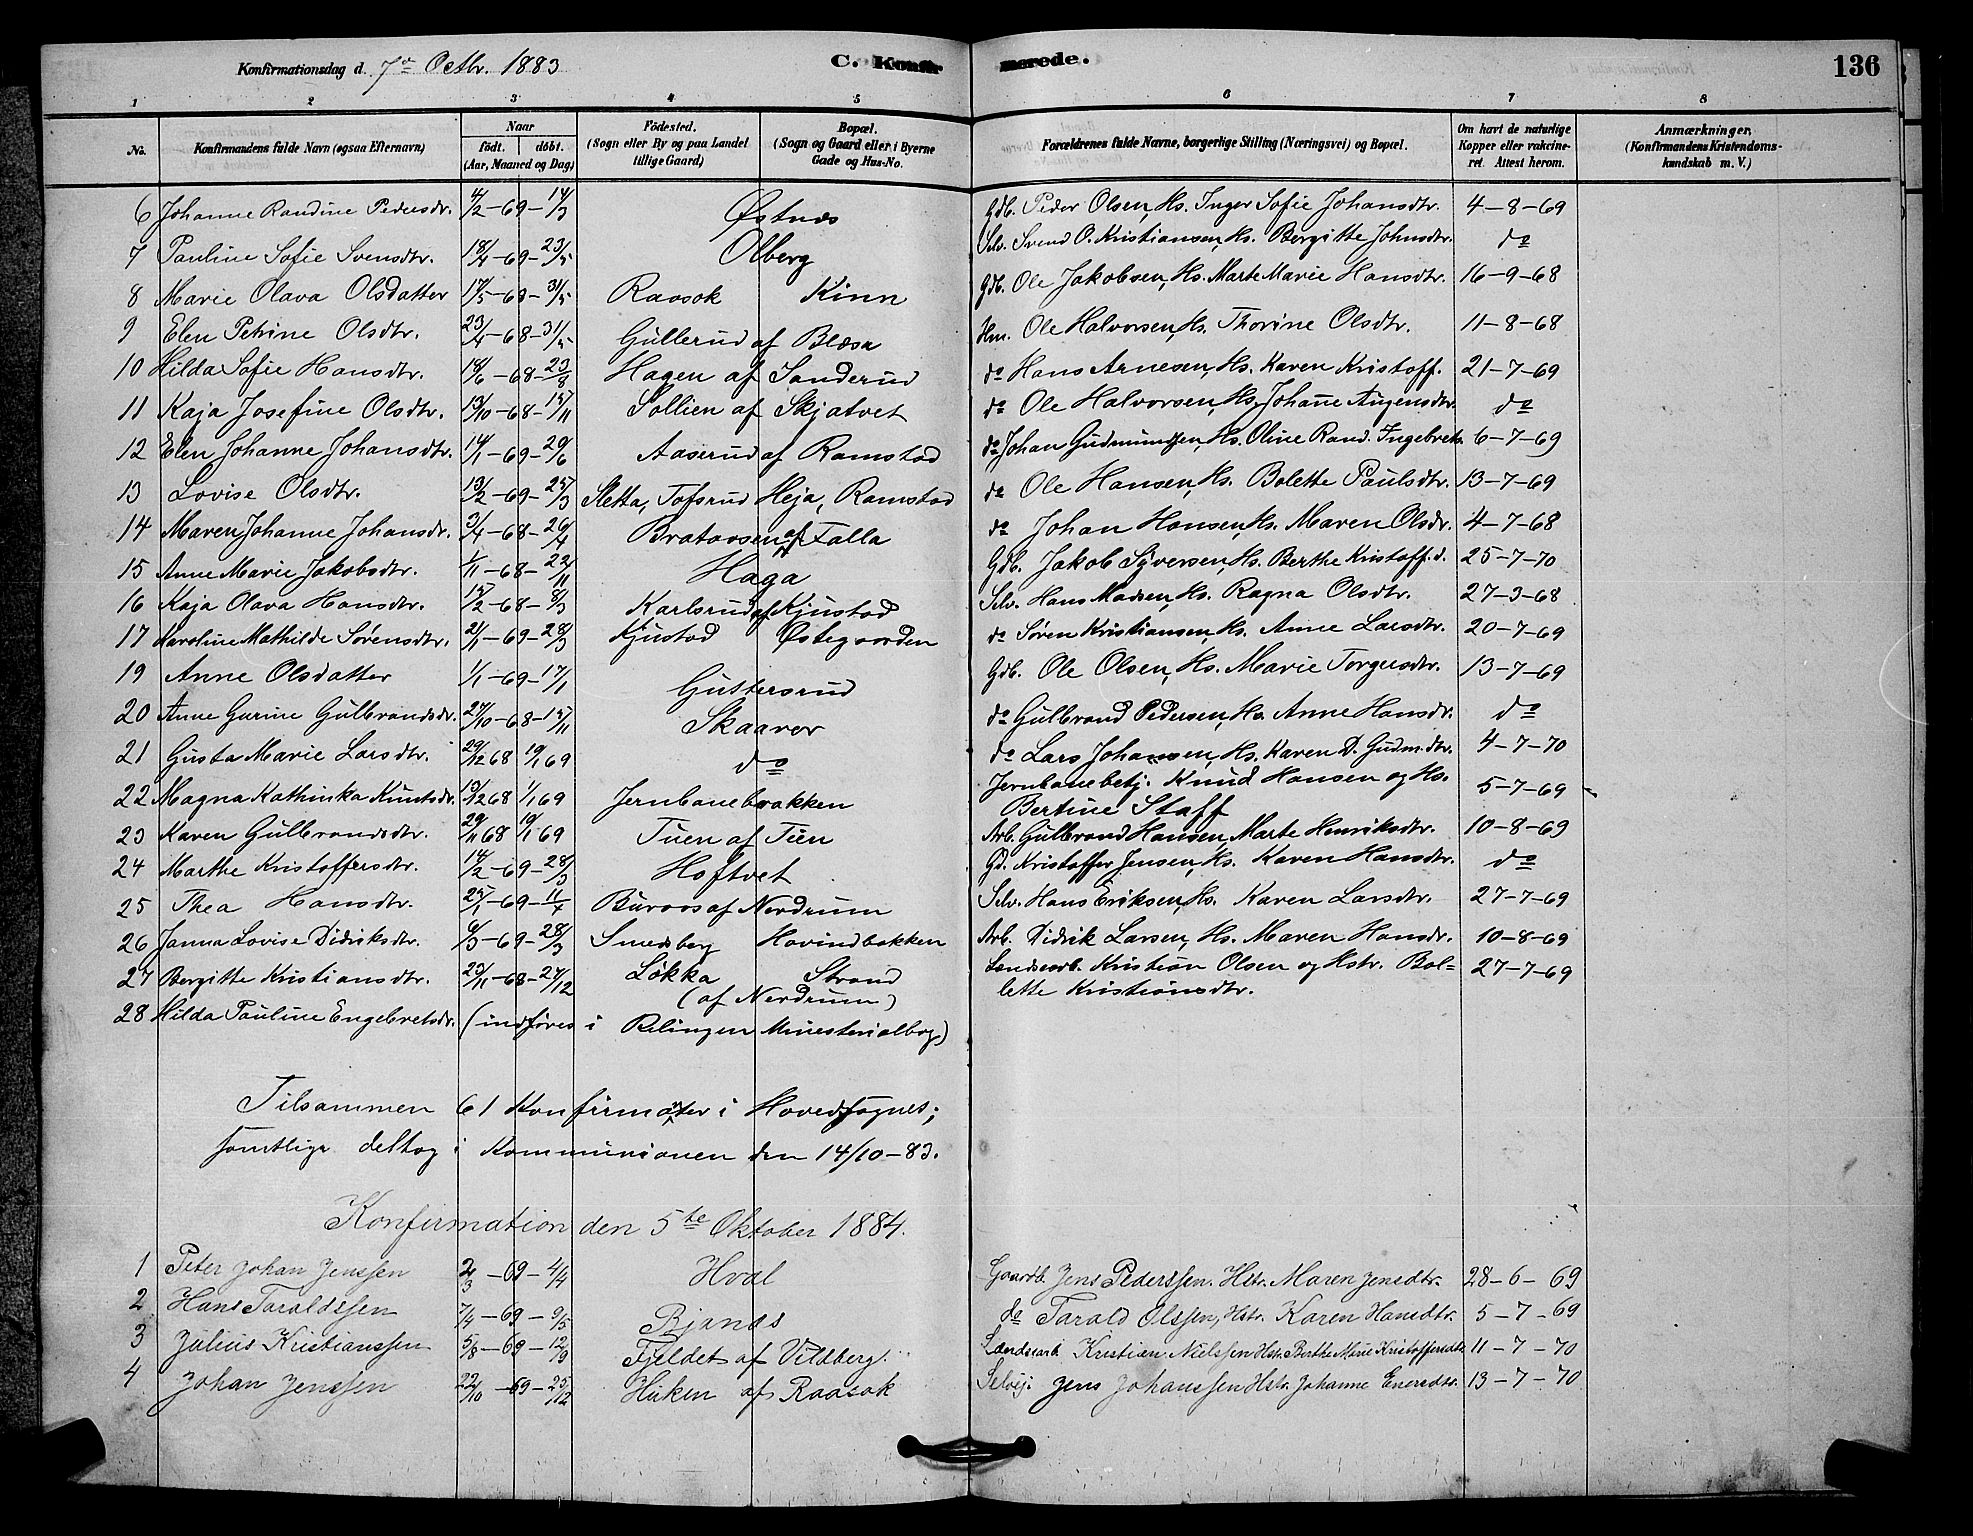 Konfirmationsdag d. 7de Octbr. 1883 C. Konfirmerede. 136
1 2 3 4 5 6 7 8
No. Konfirmandens fulde Navn (ogsaa Efternavn) Naar født. døbt. (Aar, Maaned og Dag) Fødested. (Sogn eller By og paa Landet tillige Gaard) Bopæl. (Sogn og Gaard eller i Byerne Gade og Hus-No. Forældrenes fulde Navne, borgerlige Stilling (Næringsvei) og Bopæl. Om havt de naturlige Kopper eller vaccineret. Attest herom. Anmærkninger. (Konfirmandens Kristendomskundskab m. V.)
6 Johanne Randine Pedersdr. 4/2 - 69 - 14/3 Østnes Gdb. Peder Olsen, Hs. Inger Sofie Johansdtr. 4-8-69
7 Pauline Sofie Svensdtr. 18/4 - 69 - 23/5 Olberg Selv. Svend O. Kristiansen, Hs. Bergitte Johnsdtr. do
8 Marie Olava Olsdatter 17/5 - 68 - 31/5 Raasok Kinn Gdb. Ole Jakobsen, Hs. Marte Marie Hansdtr. 16-9-68
9 Elen Petrine Olsdtr. 23/4 - 68 - 31/5 Gullerud af Blæsa Hm. Ole Halvorsen, Hs. Thorine Olsdtr. 11-8-68
10 Hilda Sofie Hansdtr. 18/6 - 68 - 23/8 Hagen af Sanderud do Hans Arnesen, Hs. Karen Kristoff. 21-7-69
11 Kaja Josefine Olsdtr. 13/10 - 68 - 15/11 Sollien af Skjatvet do Ole Halvorsen, Hs. Johanne Augensdtr. do
12 Elen Johanne Johansdtr. 14/1 - 69 - 20/6 Aaserud af Ramstad do Johan Gudmundsen, Hs. Oline Rand. Ingebretsd. 6-7-69
13 Lovise Olsdtr. 13/2 - 69 - 25/3 Sletta, Tofsrud Heja, Ramstad do Ole Hansen, Hs. Bolette Paulsdtr. 13-7-69
14 Maren Johanne Johansdr. 3/4 - 68 - 26/4 Brataasen af Falla do Johan Hansen, Hs. Maren Olsdr. 4-7-68
15 Anne Marie Jakobsdtr. 1/11 - 68 - 22/11 Haga Gdb. Jakob Syversen, Hs. Berthe Kristoff.d. 25-7-70
16 Kaja Olava Hansdtr. 15/2 - 68 - 8/3 Karlsrud af Kjustad Selv. Hans Madsen, Hs. Ragna Olsdtr. 27-3-68
17 Karoline Mathilde Sørensdtr. 21/1 - 69 - 28/3 Kjustad Østegaarden do Søren Kristiansen, Hs. Anne Larsdtr. 20-7-69
19 Anne Olsdatter 1/1 - 69 - 17/1 Guttersrud Gdb. Ole Olsen, Hs. Marie Torgersdtr. 13-7-69
20 Anne Gurine Gulbrandsdr. 27/10 - 68 - 15/11 Skaarer do Gulbrand Pedersen, Hs. Anne Hansdr. do
21 Gusta Marie Larsdtr. 29/12 68 10/1 69 do do Lars Johansen, Hs. Karen D. Gudm.dtr. 4-7-70
22 Magna Kathinka Knutsdr. 13/12 68 1/1 69 Jernbanebrakken Jernbanebetj. Knud Hansen og Hs. 5-7-69
Bertine Staff
23 Karen Gulbrandsdtr. 29/11 68 10/1 69 Tuen af Tuen Arb. Gulbrand Hansen, Marte Henriksdtr. 10-8-69
24 Marthe Kristoffersdtr. 14/2 - 69 - 28/3 Hoftvet Gd. Kristoffer Jensen, Hs. Karen Hansdtr. do
25 Thea Hansdtr. 25/1 - 69 - 11/4 Buraas af Nordrum Selv. Hans Eriksen, Hs. Karen Larsdtr. 27-7-69
26 Janna Lovise Didriksdtr. 6/3 - 69 - 28/3 Smedsberg Hovindbakken Arb. Didrik Larsen, Hs. Maren Hansdr. 10-8-69
27 Bergitte Kristiansdtr. 20/11 - 68 - 27/12 Løkka Strand Landearb. Kristian Olsen og Hstr. Bol= 27-7-69
(af Nordrum) lette Kristiansdtr.
28 Hilda Pauline Engebretsdr. (indføres i Rælingen Ministerialbog)
Tilsammen 61 Konfirmanter i Hovedsognet;
samtlige deltog i Kommunionen den 14/10-83.
Konfirmation den 5te Oktober 1884.
1 Peter Johan Jenssen 2/3 - 69 - 4/4 Hval Gaardb. Jens Pederssen. Hstr. Maren Jensdtr. 28-6-69
2 Hans Taraldssen 7/4 - 69 - 9/5 Bjanes do Tarald Olssen, Hstr. Karen Hansdtr. 5-7-69
3 Julius Kristianssen 5/8 - 69 - 12/9 Fjeldet af Vildberg. Landearb. Kristian Nielssen Hstr. Berthe Marie Kristoffersdtr. 11-7-70
4 Johan Jenssen 22/10 - 69 - 25/12 Haken af Raasok Selvej. Jens Johanssen Hstr. Johanne Enersdtr. 13-7-70